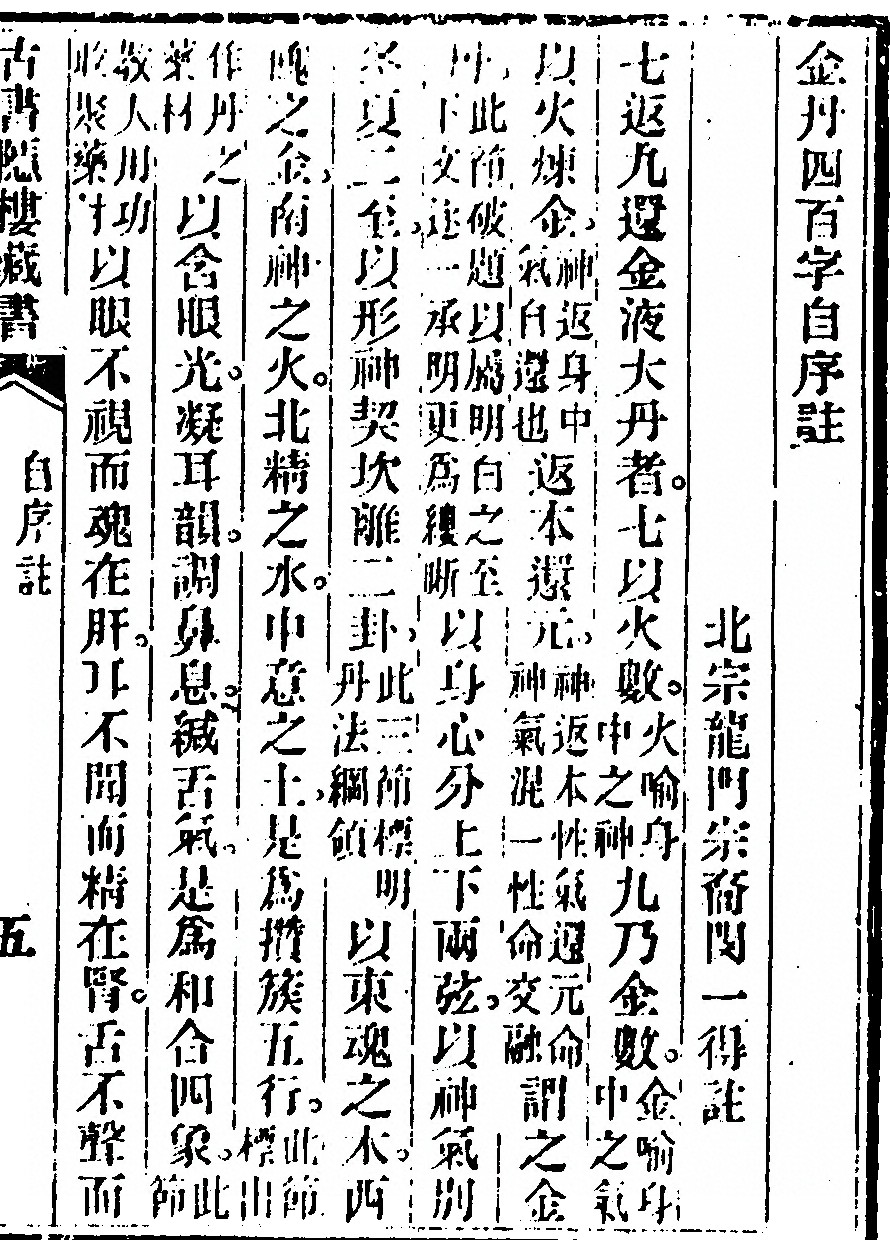 金丹四百字自序註
北宗龍門宗裔閔一得註
七返九還金液大丹者。七以火數。火喻身中之神九乃金數。金喻身中之氣
以火煉金。神返身中氣自還也返本還元。神返本性氣還元命神氣混一性命交融謂之金
丹。此節破題以屬明白之至下文逐一承明更爲縷晰以身心分上下兩弦。以神氣別
冬夏二至。以形神契坎離二卦。此三節標明丹法綱領以東魂之木。西
魄之金。南神之火。北精之水。中意之土。是爲攢簇五行。此節標出
作丹之藥材以含眼光。凝耳韻。調鼻息。緘舌氣。是爲和合四象。此節
教人用功收聚藥材以眼不視而魂在肝。耳不聞而精在腎。舌不聲而
古書隱樓藏書
自序註
五